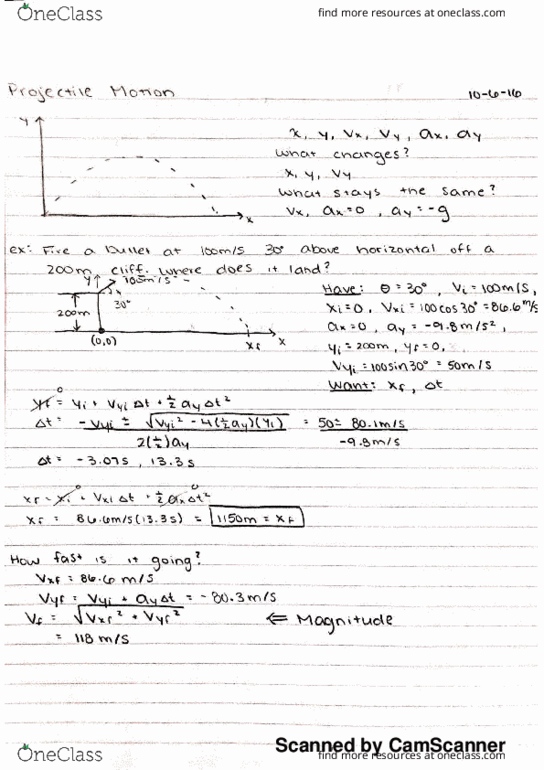 OneClass
find more resources at oneclass.com
Projectile Motion
10-6-16
y
x
x, y, Vx, Vy, ax, ay
What changes?
x, y, Vy
What stays the same?
Vx, ax=0, ay=-g
ex: Fire a bullet at 100m/s 30° above horizontal off a
200m cliff. Where does it land?
y
100m/s
30°
200m
(0,0)
xf
x
Have: θ=30°, Vi=100m/s,
xi=0, Vxi=100cos30°=86.6m/s
ax=0, ay=-9.8m/s²,
yi=200m, yf=0,
Vyi=100sin30°=50m/s
Want: xf, Δt
0
yf = yi + Vyi Δt + ½ ay Δt²
Δt = -Vyi ± √Vyi² - 4(½ay)(yi) = 50± 80.1m/s
2(½)ay -9.8m/s
Δt = -3.07s, 13.3s
0 0
xf = xi + Vxi Δt + ½ax Δt²
xf = 86.6m/s(13.3s) = 1150m = xf
How fast is it going?
Vxf = 86.6 m/s
Vyf = Vyi + ay Δt = -80.3m/s
Vf = √Vxf² + Vyf² ⇐ Magnitude
= 118 m/s
Scanned by CamScanner
OneClass
find more resources at oneclass.com